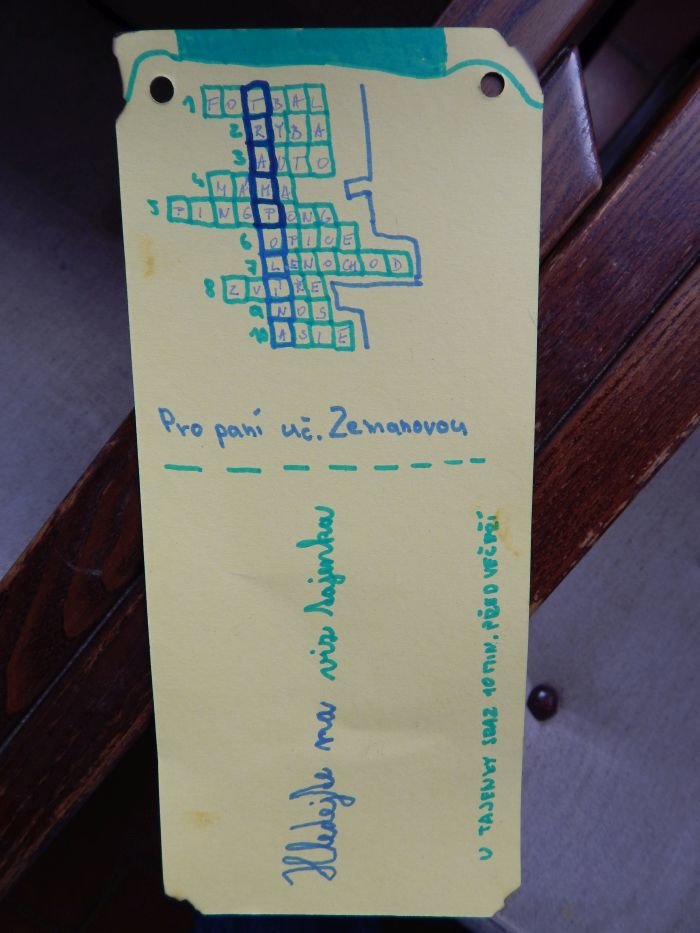 1 FOTBAL
2 RYBA
3 AUTO
4 MAMA
5 PINGPONG
6 OPICE
7 LENOCHOD
8 ZVÍŘE
9 NOS
10 ASIE
Pro paní uč. Zemanovou
Hledejte na viz tajenka
U TAJENKY SRAZ 10 MIN. PŘED VEČEŘÍ